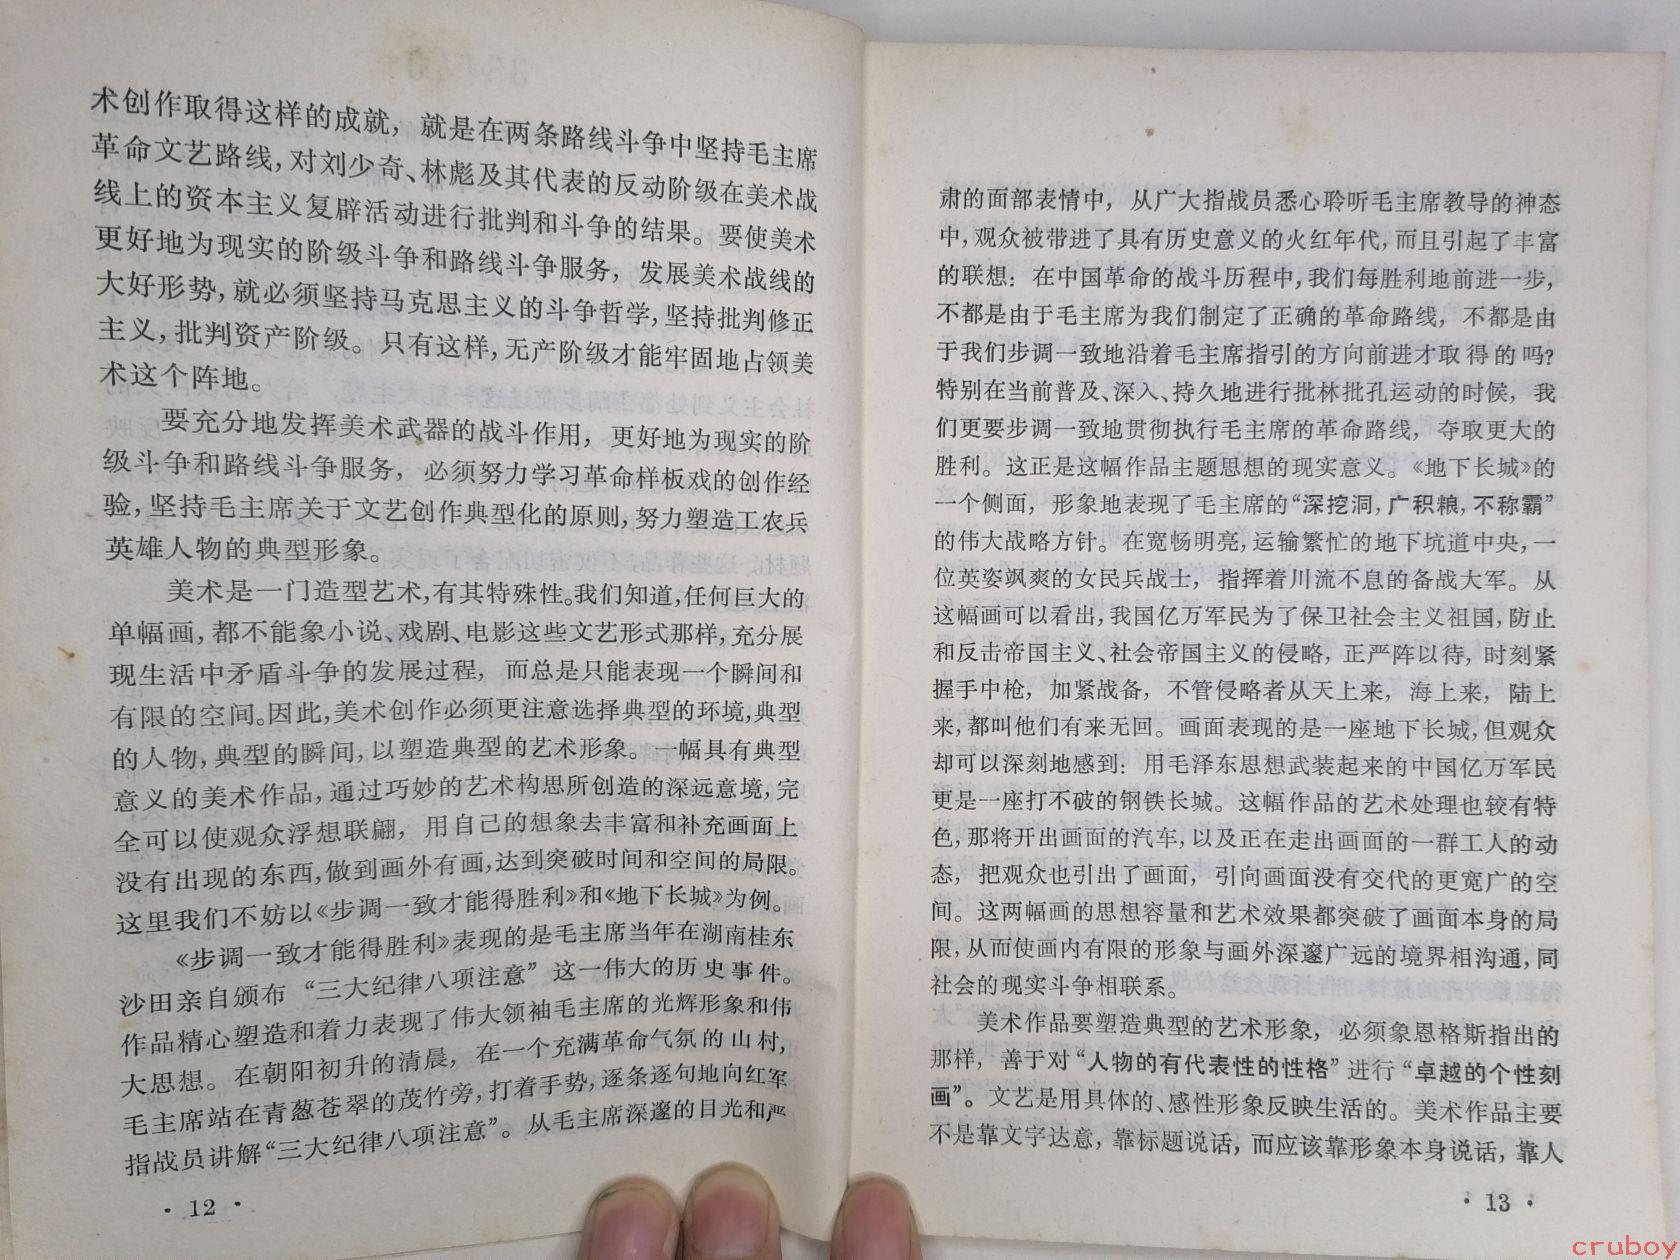 术创作取得这样的成就，就是在两条路线斗争中坚持毛主席
革命文艺路线，对刘少奇、林彪及其代表的反动阶级在美术战
线上的资本主义复辟活动进行批判和斗争的结果。要使美术
更好地为现实的阶级斗争和路线斗争服务，发展美术战线的
大好形势，就必须坚持马克思主义的斗争哲学，坚持批判修正
主义，批判资产阶级。只有这样，无产阶级才能牢固地占领美
术这个阵地。
要充分地发挥美术武器的战斗作用，更好地为现实的阶
级斗争和路线斗争服务，必须努力学习革命样板戏的创作经
验，坚持毛主席关于文艺创作典型化的原则，努力塑造工农兵
英雄人物的典型形象。
美术是一门造型艺术，有其特殊性。我们知道，任何巨大的
单幅画，都不能象小说、戏剧、电影这些文艺形式那样，充分展
现生活中矛盾斗争的发展过程，而总是只能表现一个瞬间和
有限的空间。因此，美术创作必须更注意选择典型的环境，典型
的人物，典型的瞬间，以塑造典型的艺术形象。一幅具有典型
意义的美术作品，通过巧妙的艺术构思所创造的深远意境，完
全可以使观众浮想联翩，用自己的想象去丰富和补充画面上
没有出现的东西，做到画外有画，达到突破时间和空间的局限。
这里我们不妨以《步调一致才能得胜利》和《地下长城》为例。
《步调一致才能得胜利》表现的是毛主席当年在湖南桂东
沙田亲自颁布“三大纪律八项注意”这一伟大的历史事件。
作品精心塑造和着力表现了伟大领袖毛主席的光辉形象和伟
大思想。在朝阳初升的清晨，在一个充满革命气氛的山村，
毛主席站在青葱苍翠的茂竹旁，打着手势，逐条逐句地向红军
指战员讲解“三大纪律八项注意”。从毛主席深邃的目光和严
· 12 ·
肃的面部表情中，从广大指战员悉心聆听毛主席教导的神态
中，观众被带进了具有历史意义的火红年代，而且引起了丰富
的联想：在中国革命的战斗历程中，我们每胜利地前进一步，
不都是由于毛主席为我们制定了正确的革命路线，不都是由
于我们步调一致地沿着毛主席指引的方向前进才取得的吗？
特别在当前普及、深入、持久地进行批林批孔运动的时候，我
们更要步调一致地贯彻执行毛主席的革命路线，夺取更大的
胜利。这正是这幅作品主题思想的现实意义。《地下长城》的
一个侧面，形象地表现了毛主席的“深挖洞，广积粮，不称霸”
的伟大战略方针。在宽畅明亮，运输繁忙的地下坑道中央，一
位英姿飒爽的女民兵战士，指挥着川流不息的备战大军。从
这幅画可以看出，我国亿万军民为了保卫社会主义祖国，防止
和反击帝国主义、社会帝国主义的侵略，正严阵以待，时刻紧
握手中枪，加紧战备，不管侵略者从天上来，海上来，陆上
来，都叫他们有来无回。画面表现的是一座地下长城，但观众
却可以深刻地感到：用毛泽东思想武装起来的中国亿万军民
更是一座打不破的钢铁长城。这幅作品的艺术处理也较有特
色，那将开出画面的汽车，以及正在走出画面的一群工人的动
态，把观众也引出了画面，引向画面没有交代的更宽广的空
间。这两幅画的思想容量和艺术效果都突破了画面本身的局
限，从而使画内有限的形象与画外深邃广远的境界相沟通，同
社会的现实斗争相联系。
美术作品要塑造典型的艺术形象，必须象恩格斯指出的
那样，善于对“人物的有代表性的性格”进行“卓越的个性刻
画”。文艺是用具体的、感性形象反映生活的。美术作品主要
不是靠文字达意，靠标题说话，而应该靠形象本身说话，靠人
· 13 ·
cruboy